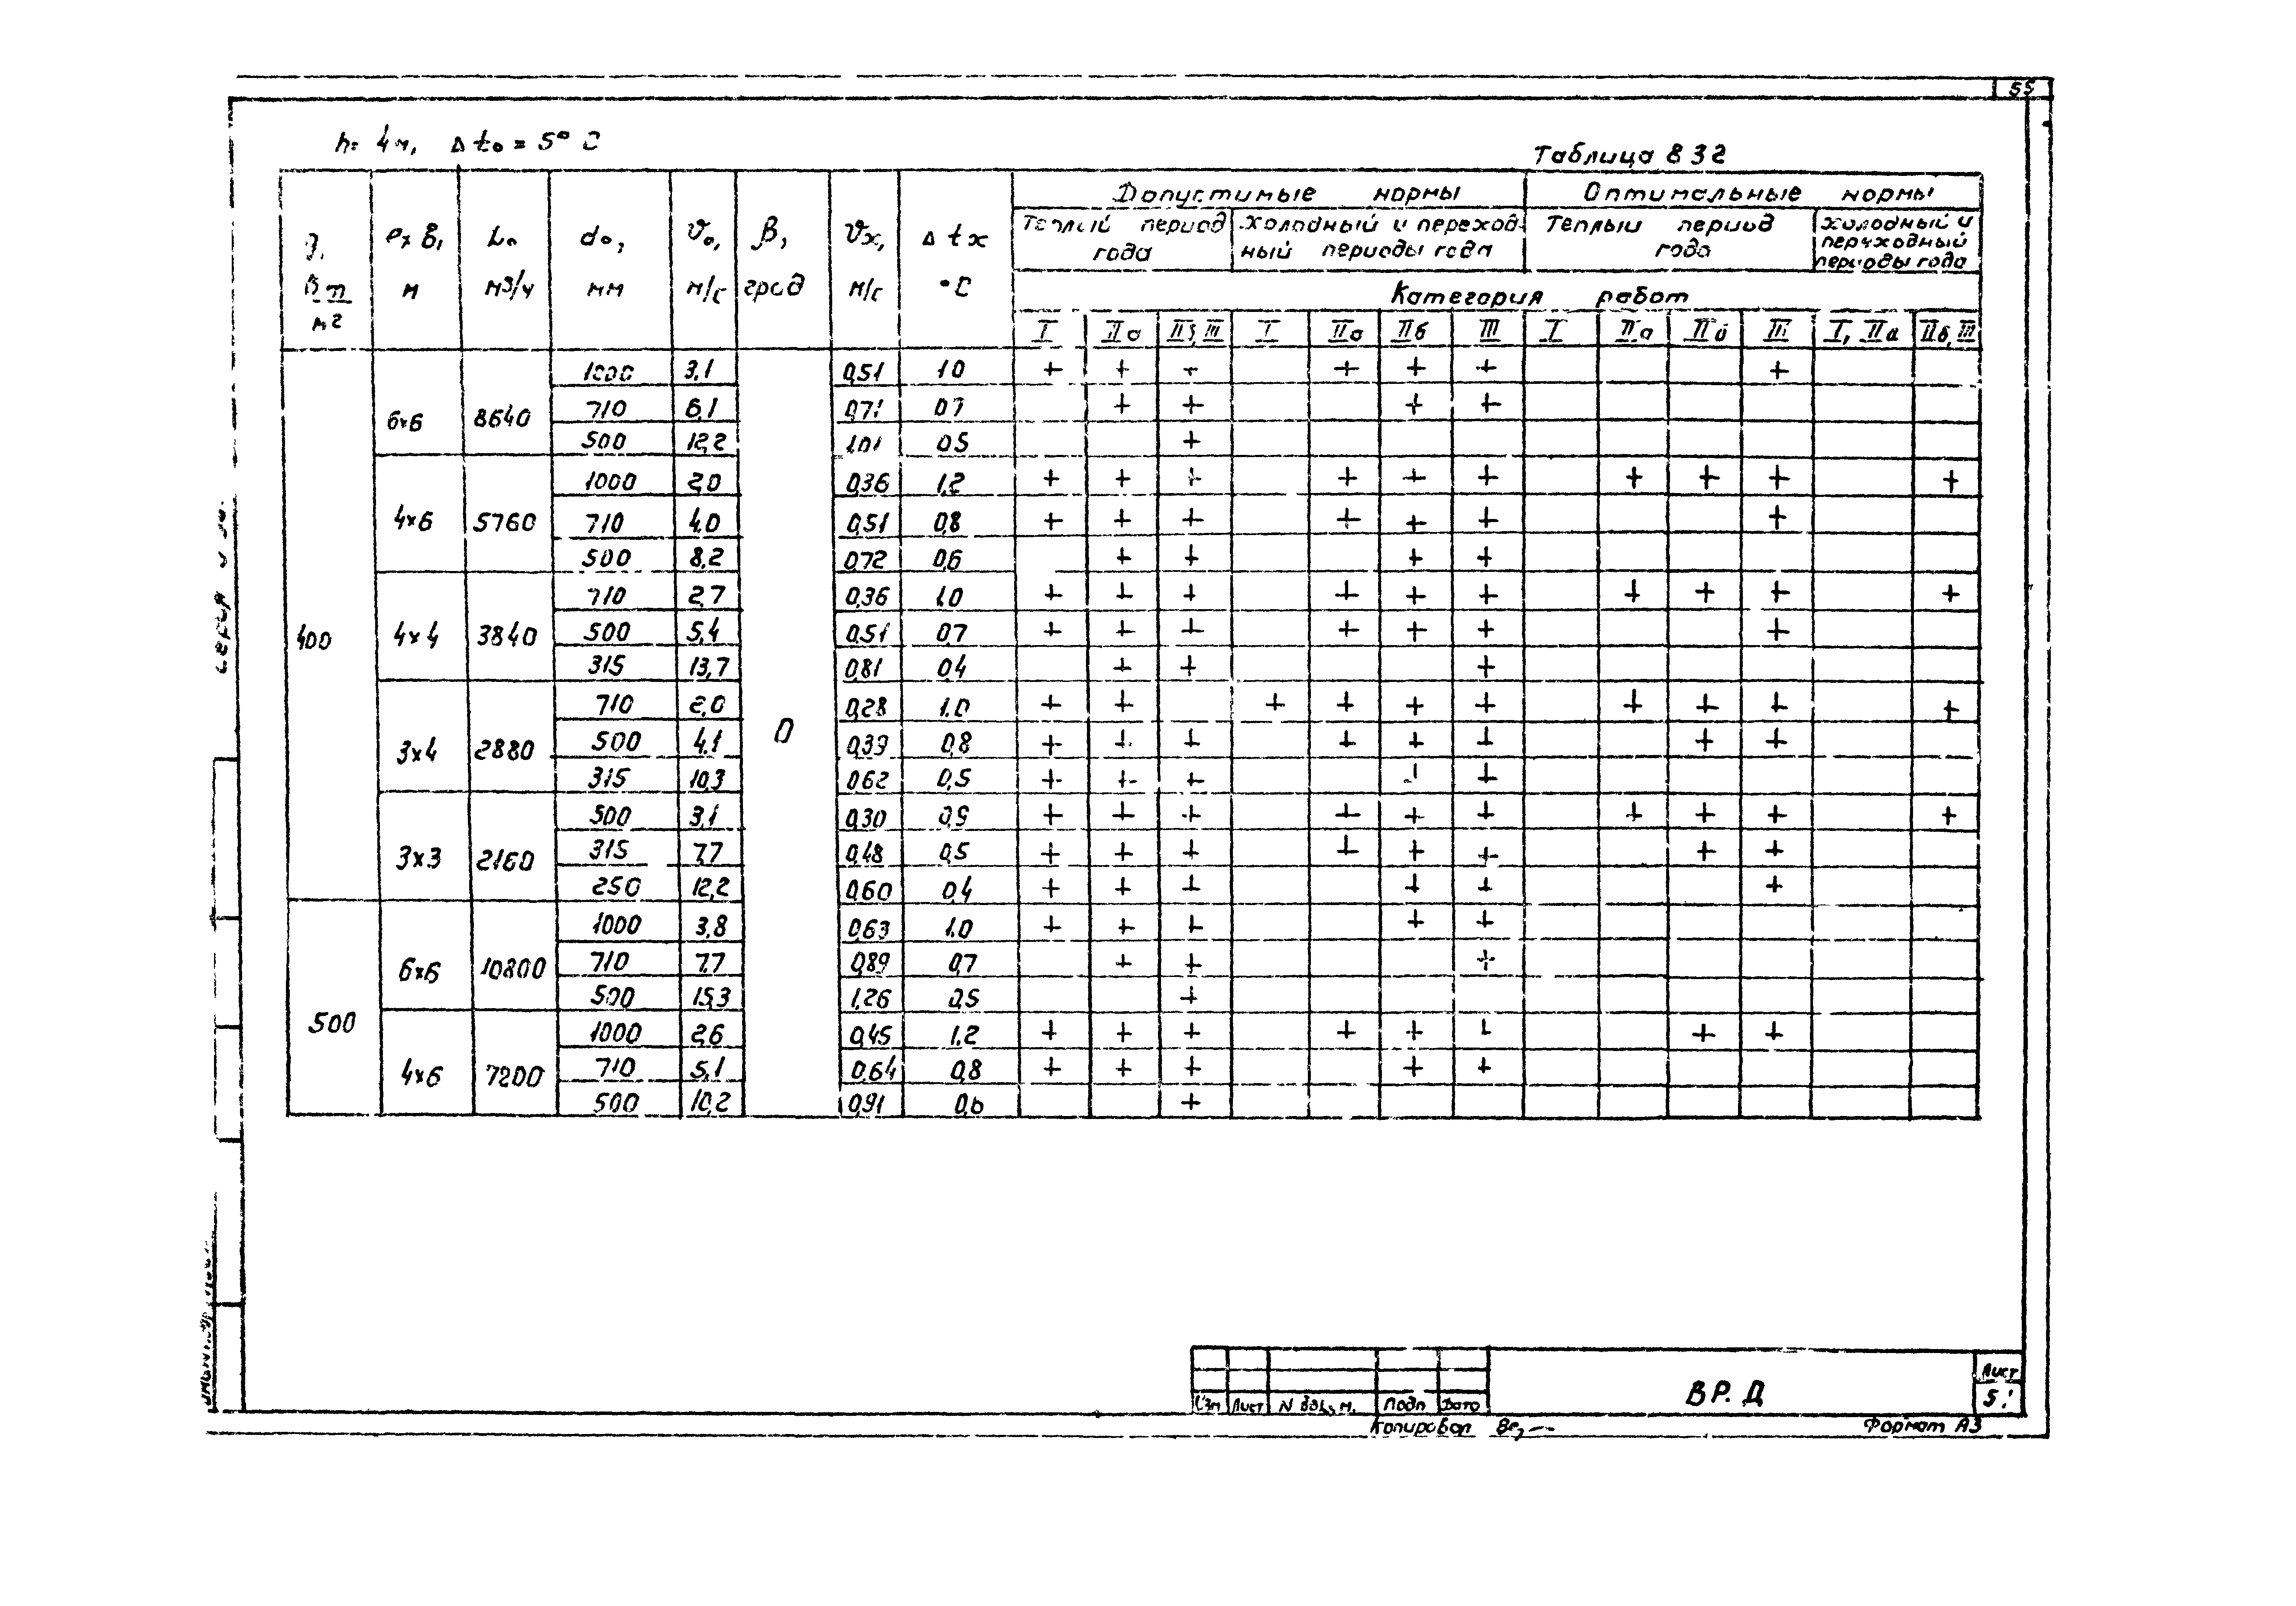 55
h= 4м, Δto = 5° C
Таблица 8 3 2
q, Вт/м2 | e×B, м | Lo м3/ч | do, мм | vo, м/с | β, град | vx, м/с | Δtx °C | Допустимые нормы | Оптимальные нормы
Теплый период года | Холодный и переходный периоды года | Теплый период года | Холодный и переходный периоды года
Категория работ
I | IIа | IIб, III | I | IIа | IIб | III | I | IIа | IIб | III | I, IIа | IIб, III
400 | 6×6 | 8640 | 1000 | 3,1 | 0 | 0,51 | 1.0 | + | + | + | | + | + | + | | | | + | |
710 | 6,1 | 0,71 | 0,7 | | + | + | | | + | + | | | | | |
500 | 12,2 | 1,01 | 0,5 | | | + | | | | | | | | | |
4×6 | 5760 | 1000 | 2,0 | 0,36 | 1,2 | + | + | + | | + | + | + | | + | + | + | | +
710 | 4,0 | 0,51 | 0,8 | + | + | + | | + | + | + | | | | + | |
500 | 8,2 | 0,72 | 0,6 | | + | + | | | + | + | | | | | |
4×4 | 3840 | 710 | 2,7 | 0,36 | 1,0 | + | + | + | | + | + | + | | + | + | + | | +
500 | 5,4 | 0,51 | 0,7 | + | + | + | | + | + | + | | | | + | |
315 | 13,7 | 0,81 | 0,4 | | + | + | | | | + | | | | | |
3×4 | 2880 | 710 | 2,0 | 0,28 | 1.0 | + | + | | + | + | + | + | | + | + | + | | +
500 | 4,1 | 0,39 | 0,8 | + | + | + | | + | + | + | | | + | + | |
315 | 10,3 | 0,62 | 0,5 | + | + | + | | | + | + | | | | | |
3×3 | 2160 | 500 | 3,1 | 0,30 | 0,9 | + | + | + | | + | + | + | | + | + | + | | +
315 | 7,7 | 0,48 | 0,5 | + | + | + | | + | + | + | | | + | + | |
250 | 12,2 | 0,60 | 0,4 | + | + | + | | | + | + | | | | + | |
500 | 6×6 | 10800 | 1000 | 3,8 | 0,63 | 1.0 | + | + | + | | | + | + | | | | | |
710 | 7,7 | 0,89 | 0,7 | | + | + | | | | + | | | | | |
500 | 15,3 | 1,26 | 0,5 | | | + | | | | | | | | | |
4×6 | 7200 | 1000 | 2,6 | 0,45 | 1,2 | + | + | + | | + | + | + | | | + | + | |
710 | 5,1 | 0,64 | 0,8 | + | + | + | | | + | + | | | | | |
500 | 10,2 | 0,91 | 0,6 | | | + | | | | | | | | | |
Изм Лист N докум. Подп Дата
ВР. Д
Лист
Копировал
Формат А3